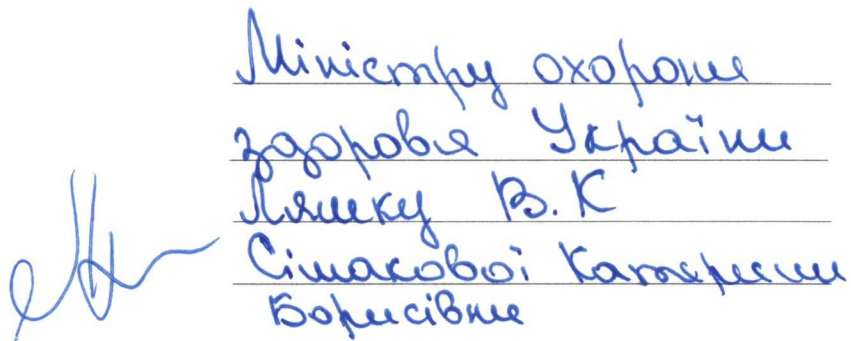 Міністру охорони
здоровья України
Ляшку В.К
Сімакової Катерини
Борисівни